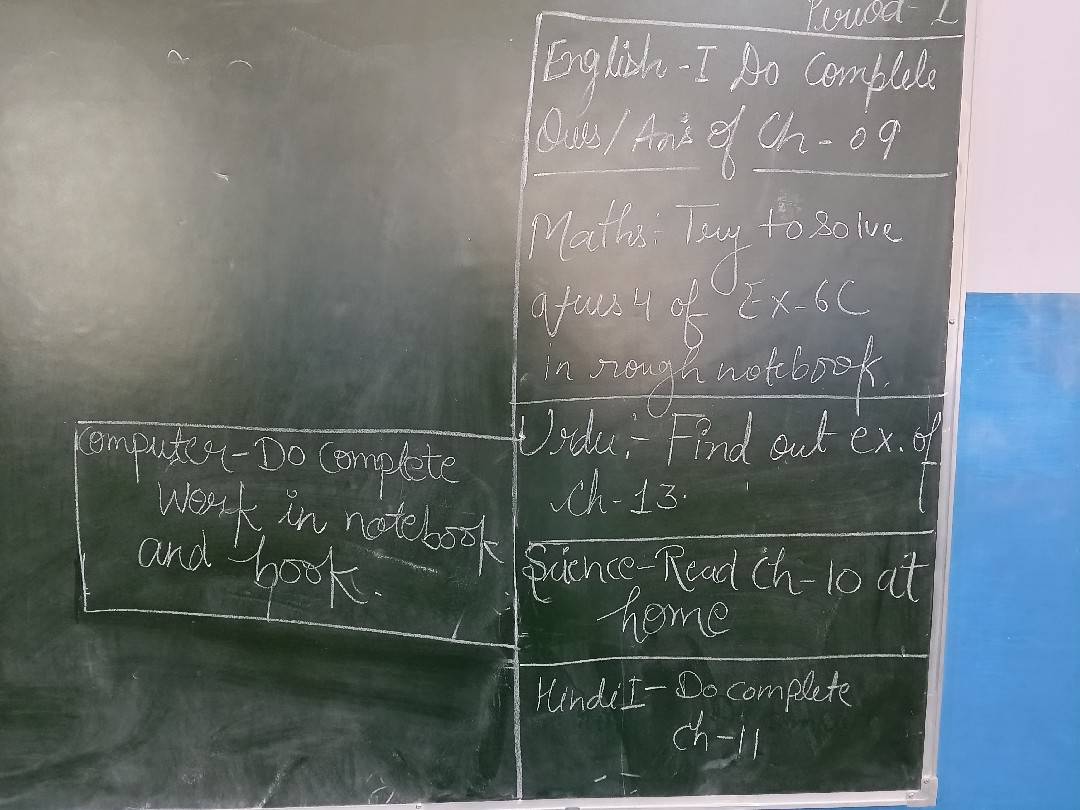 Period-
English-I Do Complete
Ques/Ans of Ch-09
Maths:- Try to solve
4 of Ex-6C
in rough notebook.
Urdu:- Find out ex. of
Ch-13.
Science-Read Ch-10 at
home
Hindi I- Do complete
Ch-11
Computer-Do Complete
Work in notebook
and book.